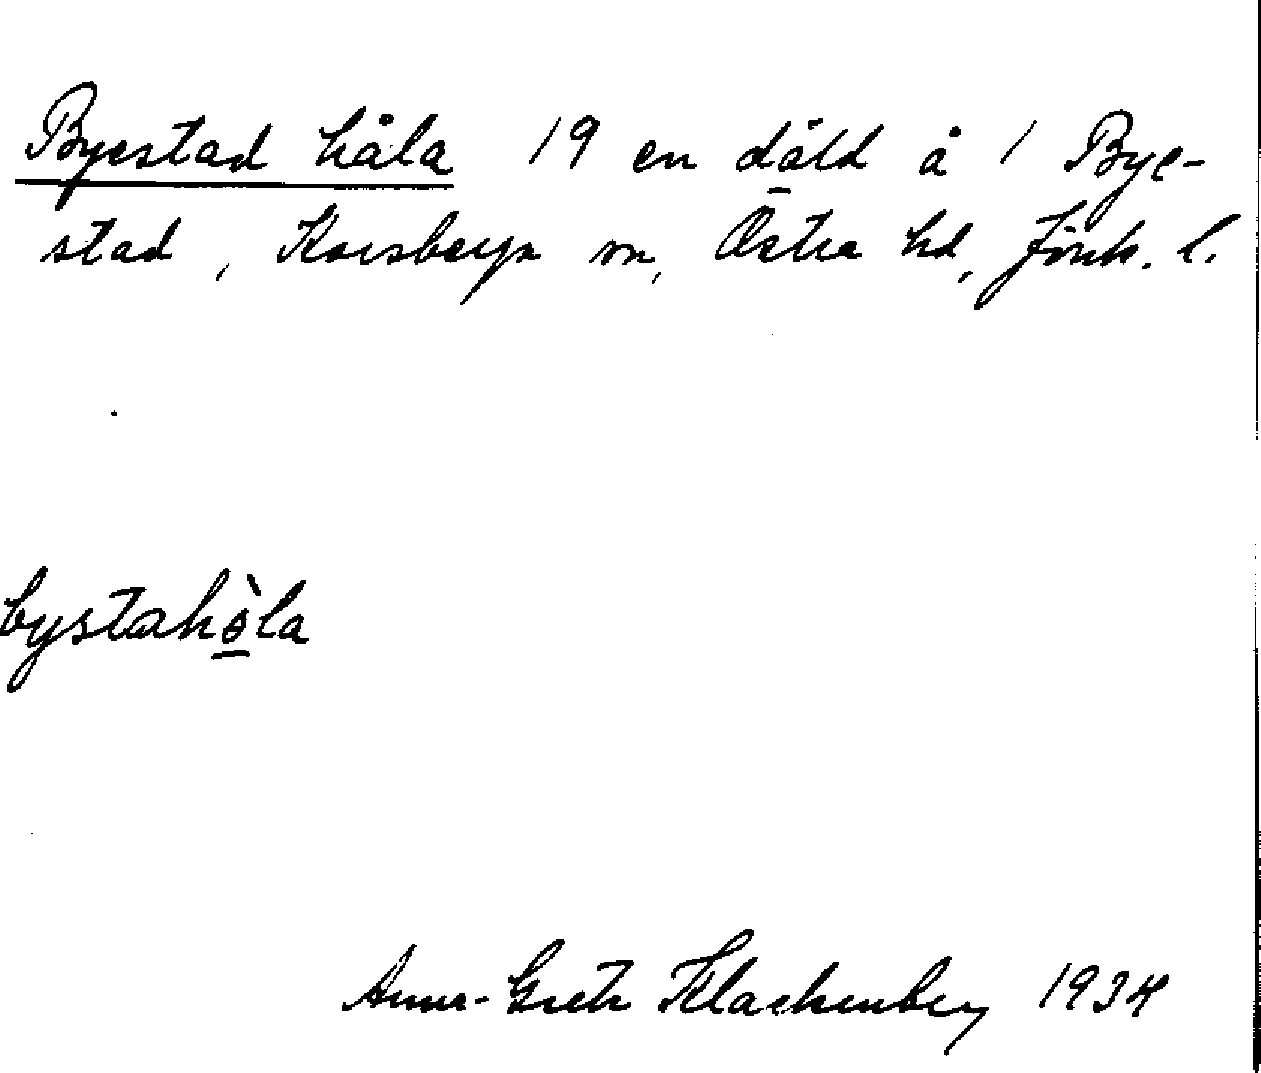 Byestad håla 19 en däld å 1 Bye-
stad, Korsberga sn, Östra hd, Jönk. l.
bystahò̱la
Anna-Greta Klackenberg 1934